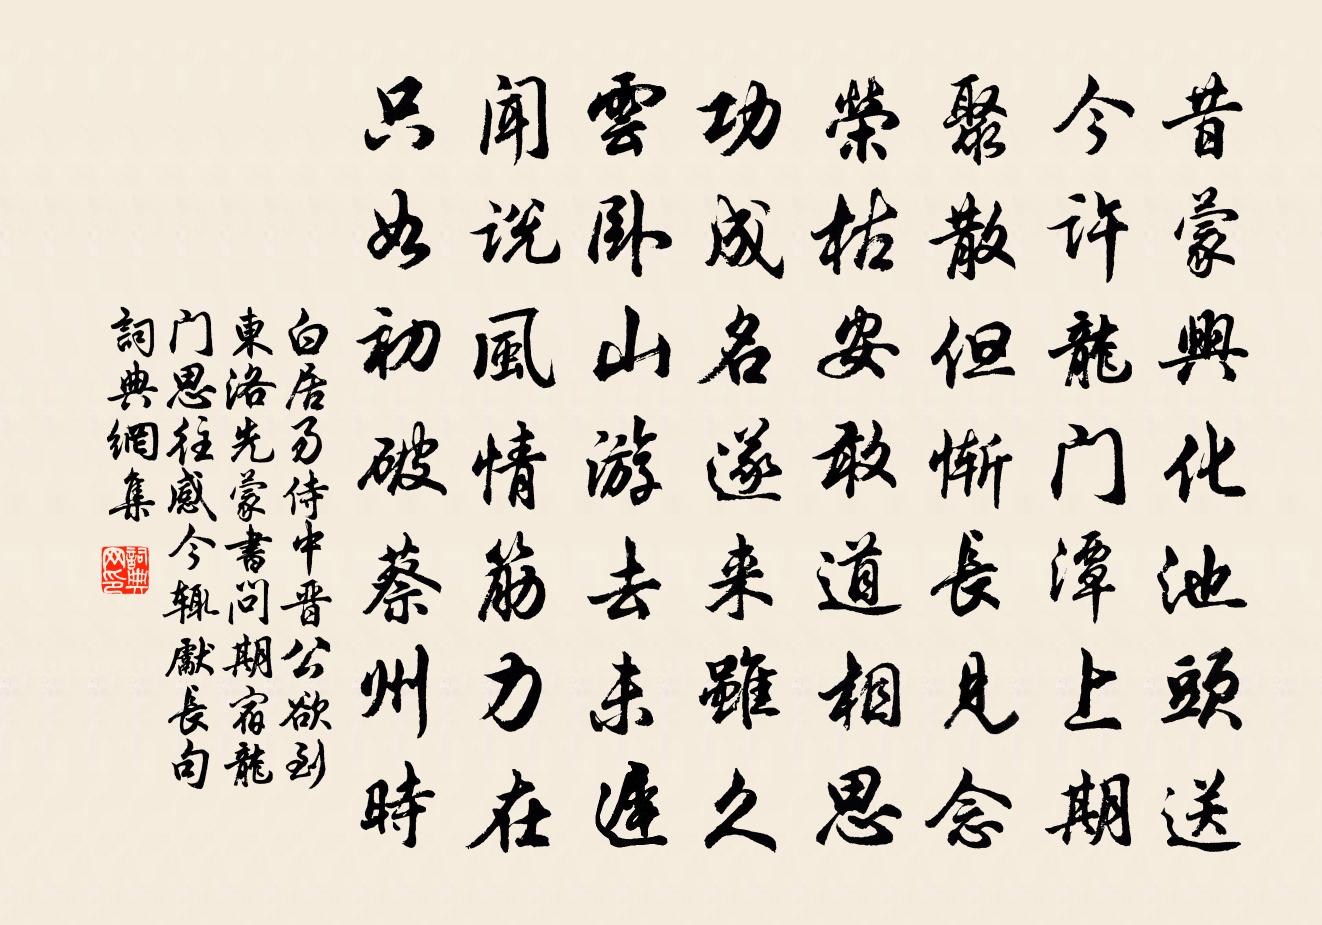 昔蒙興化池頭送
今許龍门潭上期
聚散但慚長見念
榮枯安敢道相思
功成名遂来雖久
雲卧山游去未遲
闻说風情筋力在
只如初破蔡州時
白居易侍中晋公欲到
東洛先蒙書问期宿龍
门思往感今輒獻長句
詞典網集
詞典网印